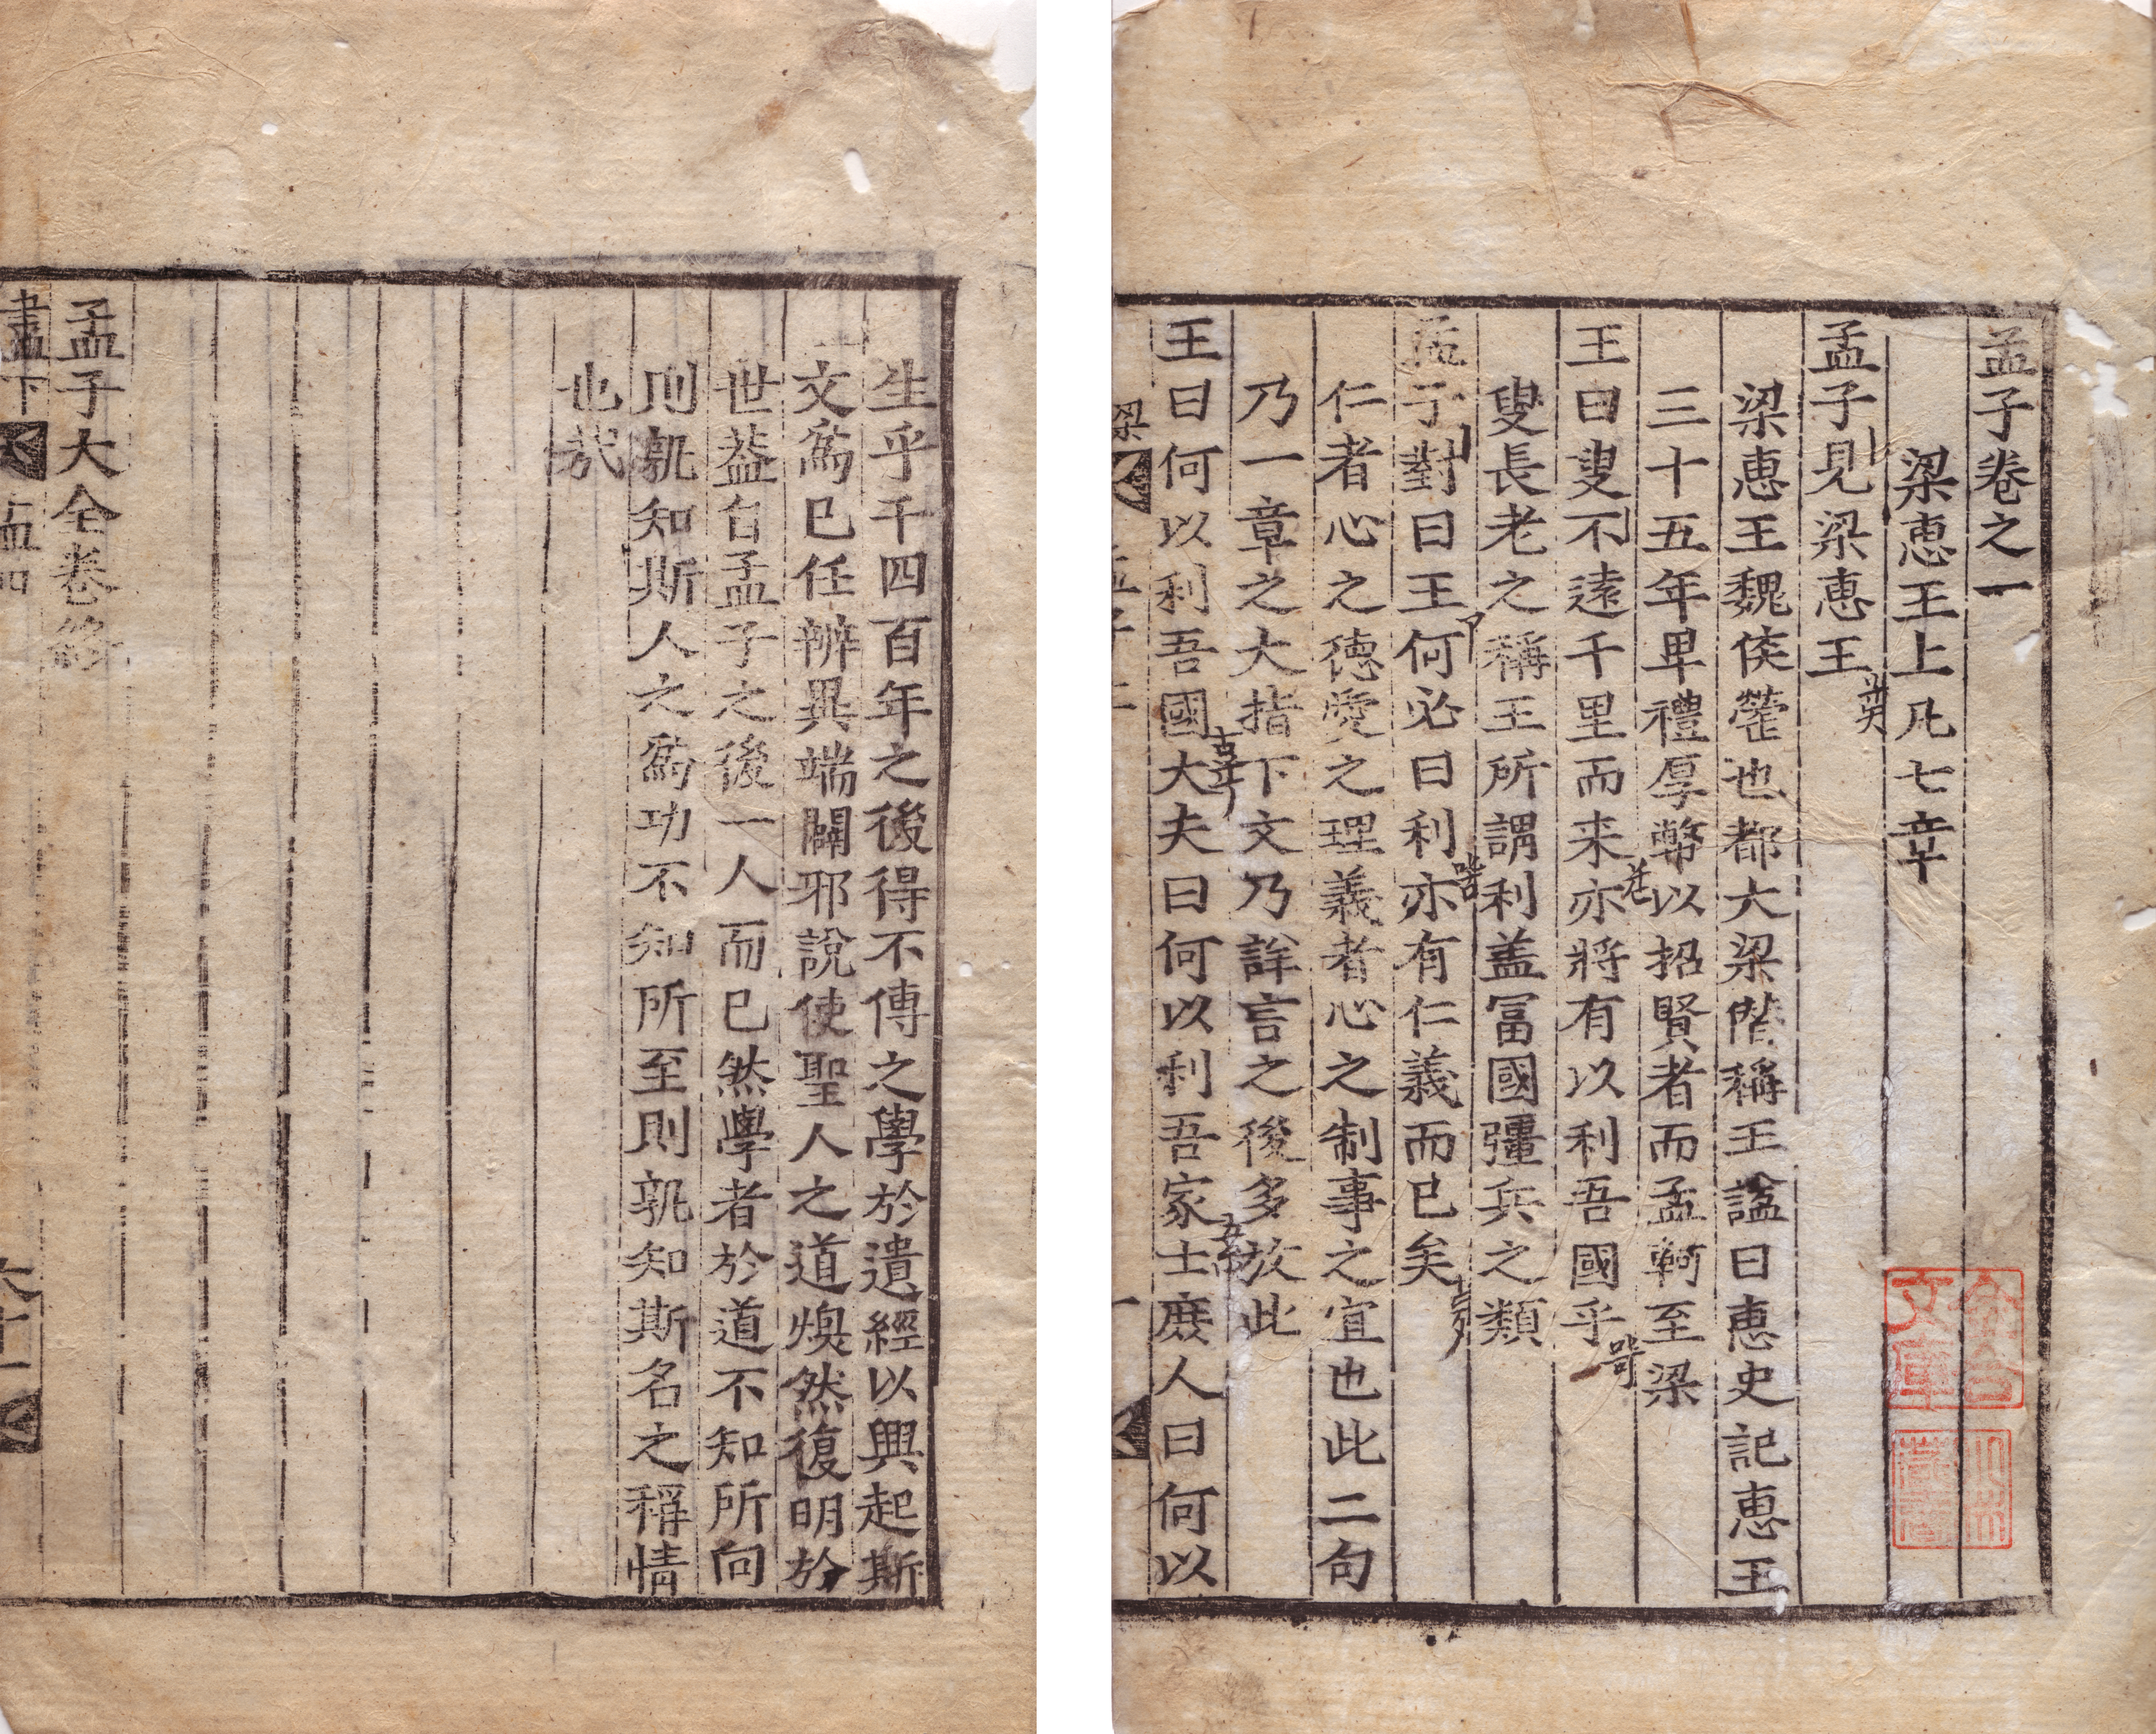 孟子卷之一
梁惠王上凡七章
孟子見梁惠王
梁惠王魏侯罃也都大梁僭稱王謚曰惠史記惠王
三十五年卑禮厚幣以招賢者而孟軻至梁
王曰叟不遠千里而来亦將有以利吾國乎
叟長老之稱王所謂利盖冨國彊兵之類
孟子對曰王何必曰利亦有仁義而已矣
仁者心之徳愛之理義者心之制事之宜也此二句
乃一章之大指下文乃詳言之後多放此
王曰何以利吾國大夫曰何以利吾家士庶人曰何以
梁
一
文庫
生乎千四百年之後得不傳之學於遺經以興起斯
文爲已任辨異端闢邪說使聖人之道煥然復明於
世葢自孟子之後一人而已然學者於道不知所向
則孰知斯人之爲功不知所至則孰知斯名之稱情
也㢤
孟子大全卷終
盡下